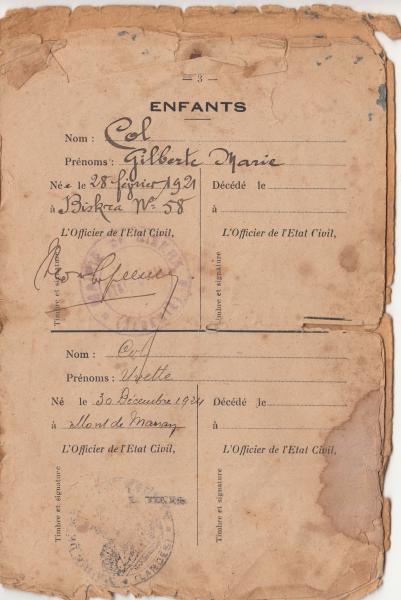 — 3 —
ENFANTS
Nom : Col
Prénoms : Gilberte Marie
Née le 28 février 1921
Décédé le
à Biskra N° 58
à
L'Officier de l'Etat Civil,
L'Officier de l'Etat Civil,
Timbre et signature
Timbre et signature
Nom : Col
Prénoms : Yvette
Né le 30 Décembre 1924
Décédé le
à Mont de Marsan
à
L'Officier de l'Etat Civil,
L'Officier de l'Etat Civil,
Timbre et signature
Timbre et signature